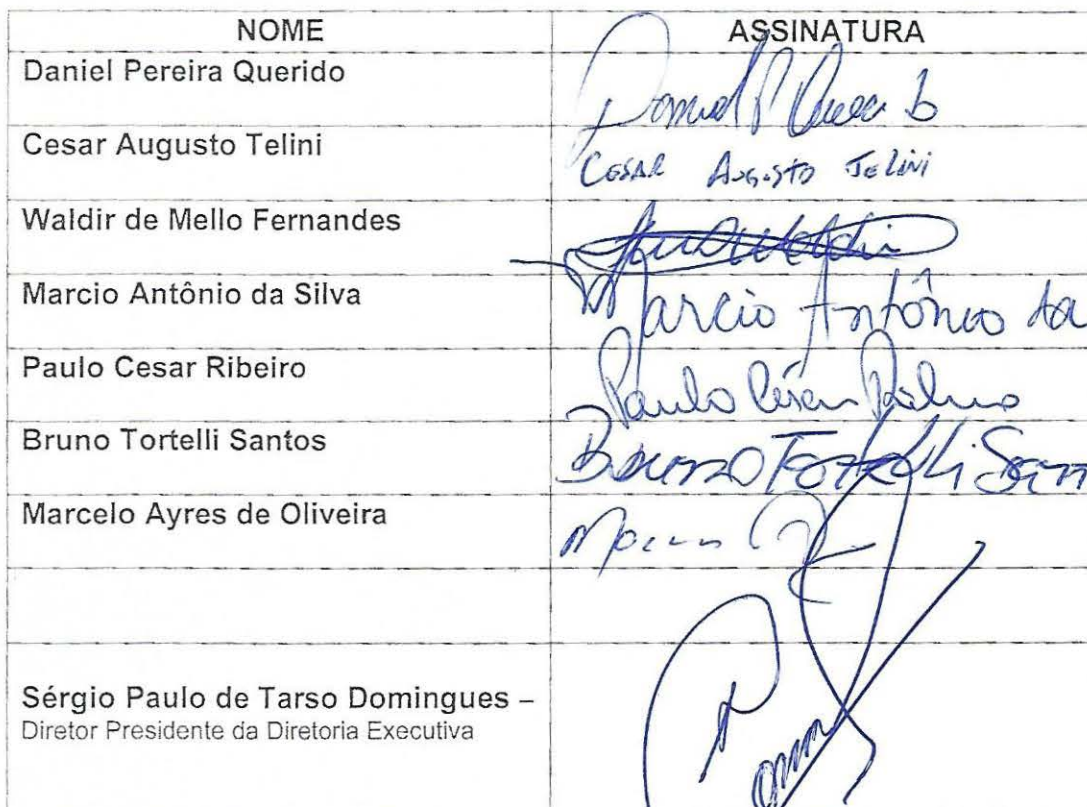 NOME ASSINATURA
Daniel Pereira Querido
Cesar Augusto Telini CESAR AUGUSTO TELINI
Waldir de Mello Fernandes
Marcio Antônio da Silva Marcio Antônio da
Paulo Cesar Ribeiro Paulo César
Bruno Tortelli Santos Bruno Tortelli
Marcelo Ayres de Oliveira
Sérgio Paulo de Tarso Domingues –
Diretor Presidente da Diretoria Executiva